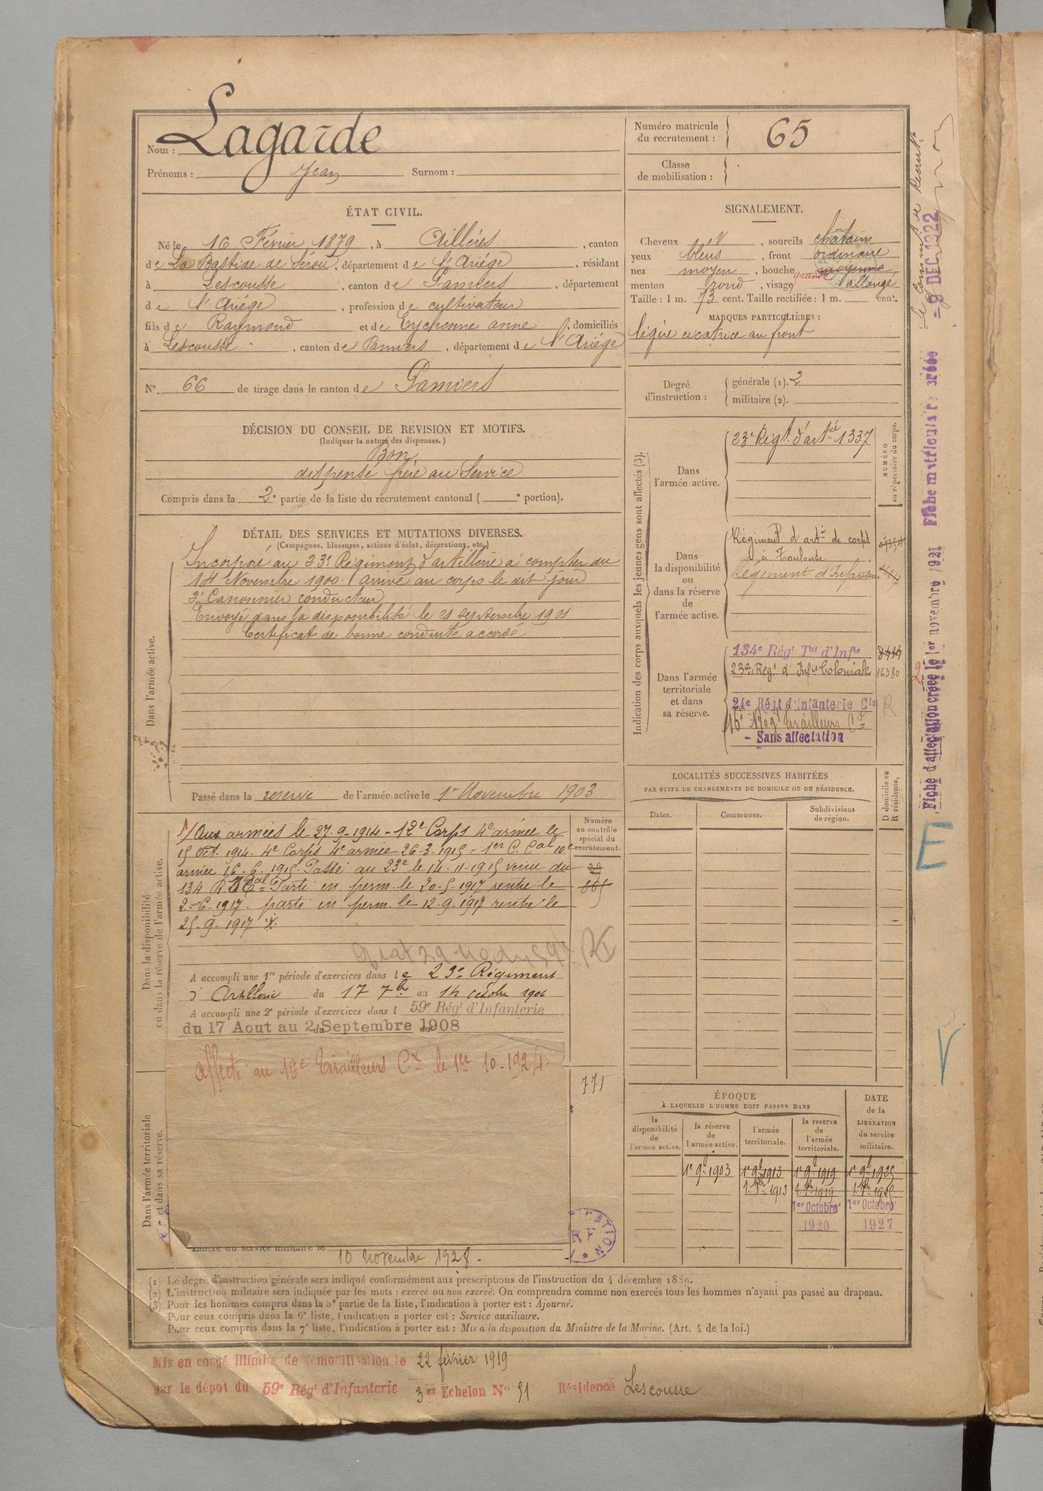 Nom : Lagarde
Prénoms : Jean Surnom :
Numéro matricule du recrutement : 65
Classe de mobilisation :
ÉTAT CIVIL.
Né le 16 Février 1879, à Aillères, canton
de La Bastide de Sérou, département de l'Ariége, résidant
à Lescousse, canton de Pamiers, département
de l'Ariége, profession de cultivateur
fils de Raymond et de Eychenne anne, domiciliés
à Lescousse, canton de Pamiers, département de l'Ariége
N° 66 de tirage dans le canton de Pamiers
SIGNALEMENT.
Cheveux , sourcils châtain
yeux bleus, front ordinaire
nez moyen, bouche grande
menton rond, visage allongé
Taille : 1 m. 73 cent. Taille rectifiée : 1 m. cent.
MARQUES PARTICULIÈRES :
légère cicatrice au front
Degré d'instruction : générale (1). 2
militaire (2).
DÉCISION DU CONSEIL DE REVISION ET MOTIFS.
(Indiquer la nature des dispenses.)
Bon
dispensé frère au Service
Compris dans la 2e partie de la liste du recrutement cantonal ( e portion).
DÉTAIL DES SERVICES ET MUTATIONS DIVERSES.
(Campagnes, blessures, actions d'éclat, décorations, etc.)
Dans l'armée active.
Incorporé au 23e Régiment d'artillerie à compter du
14 Novembre 1900. arrivé au corps le dit jour
2e Canonnier conducteur
Envoyé dans la disponibilité le 21 septembre 1901
Certificat de bonne conduite accordé
Passé dans la reserve de l'armée active le 1er Novembre 1903
Indication des corps auxquels les jeunes gens sont affectés (3).
NUMÉRO au répertoire du corps.
Dans l'armée active.
23e Régt d'artie 1337
Dans la disponibilité ou dans la réserve de l'armée active.
Régiment d'artie de corps
à Toulouse
Régiment d'Infanterie
Dans l'armée territoriale et dans sa réserve.
134e Régt Tal d'Infie
23e Régt d'Infie Coloniale 16380
24e Régt d'Infanterie Cle
16e Régt Tirailleurs
- Sans affectation
LOCALITÉS SUCCESSIVES HABITÉES
PAR SUITE DE CHANGEMENTS DE DOMICILE OU DE RÉSIDENCE.
Dates. Communes. Subdivisions de région. D domicile ou R résidence.
Dans la disponibilité ou dans la réserve de l'armée active.
Numéro au contrôle spécial du recrutement.
Aux armées le 27-9-1914 - 12e Corps 4e armée le
15 Oct. 1914. 4e Corps 4e armée 26-3-1915 - 1er C. Cal 10e
armée 16-6-1915 Passé au 23e le 14-11-1915 venu du
134 Parti en perm le 20-5-1917 rentre le
2-6-1917 parti en perm le 12-9-1917 rentre le
25-9-1917
A accompli une 1re période d'exercices dans le 23e Régiment
d'Artillerie du 17 7bre au 14 octobre 1906
A accompli une 2e période d'exercices dans l 59e Régt d'Infanterie
du 17 Aout au 2 Septembre 1908
affecté au 13e Tirailleurs Cx le 1er 10-1924
771
Dans l'armée territoriale et dans sa réserve.
Libéré du service militaire le 10 novembre 1928
ÉPOQUE
À LAQUELLE L'HOMME DOIT PASSER DANS
DATE de la LIBÉRATION du service militaire.
la disponibilité de l'armée active. la réserve de l'armée active. l'armée territoriale. la réserve de l'armée territoriale.
1er 9bre 1903 1er 9bre 1913 1er 9bre 1919 1er 9bre 1925
1er Octobre 1920 1er Octobre 1927
(1) Le degré d'instruction générale sera indiqué conformément aux prescriptions de l'instruction du 4 décembre 1889.
(2) L'instruction militaire sera indiquée par les mots : exercé ou non exercé. On comprendra comme non exercés tous les hommes n'ayant pas passé au drapeau.
(3) Pour les hommes compris dans la 5e partie de la liste, l'indication à porter est : Ajourné.
Pour ceux compris dans la 6e liste, l'indication a porter est : Service auxiliaire.
Pour ceux compris dans la 7e liste, l'indication à porter est : Mis à la disposition du Ministre de la Marine. (Art. 4 de la loi.)
Mis en congé illimité de démobilisation le 22 février 1919
par le dépôt du 59e Régt d'Infanterie 3e Echelon N° 91 Résidence Lescousse
Fiche d'affectation créée le 1er novembre 1921 Fiche matriculaire créée = 9 DEC. 1922
E
V